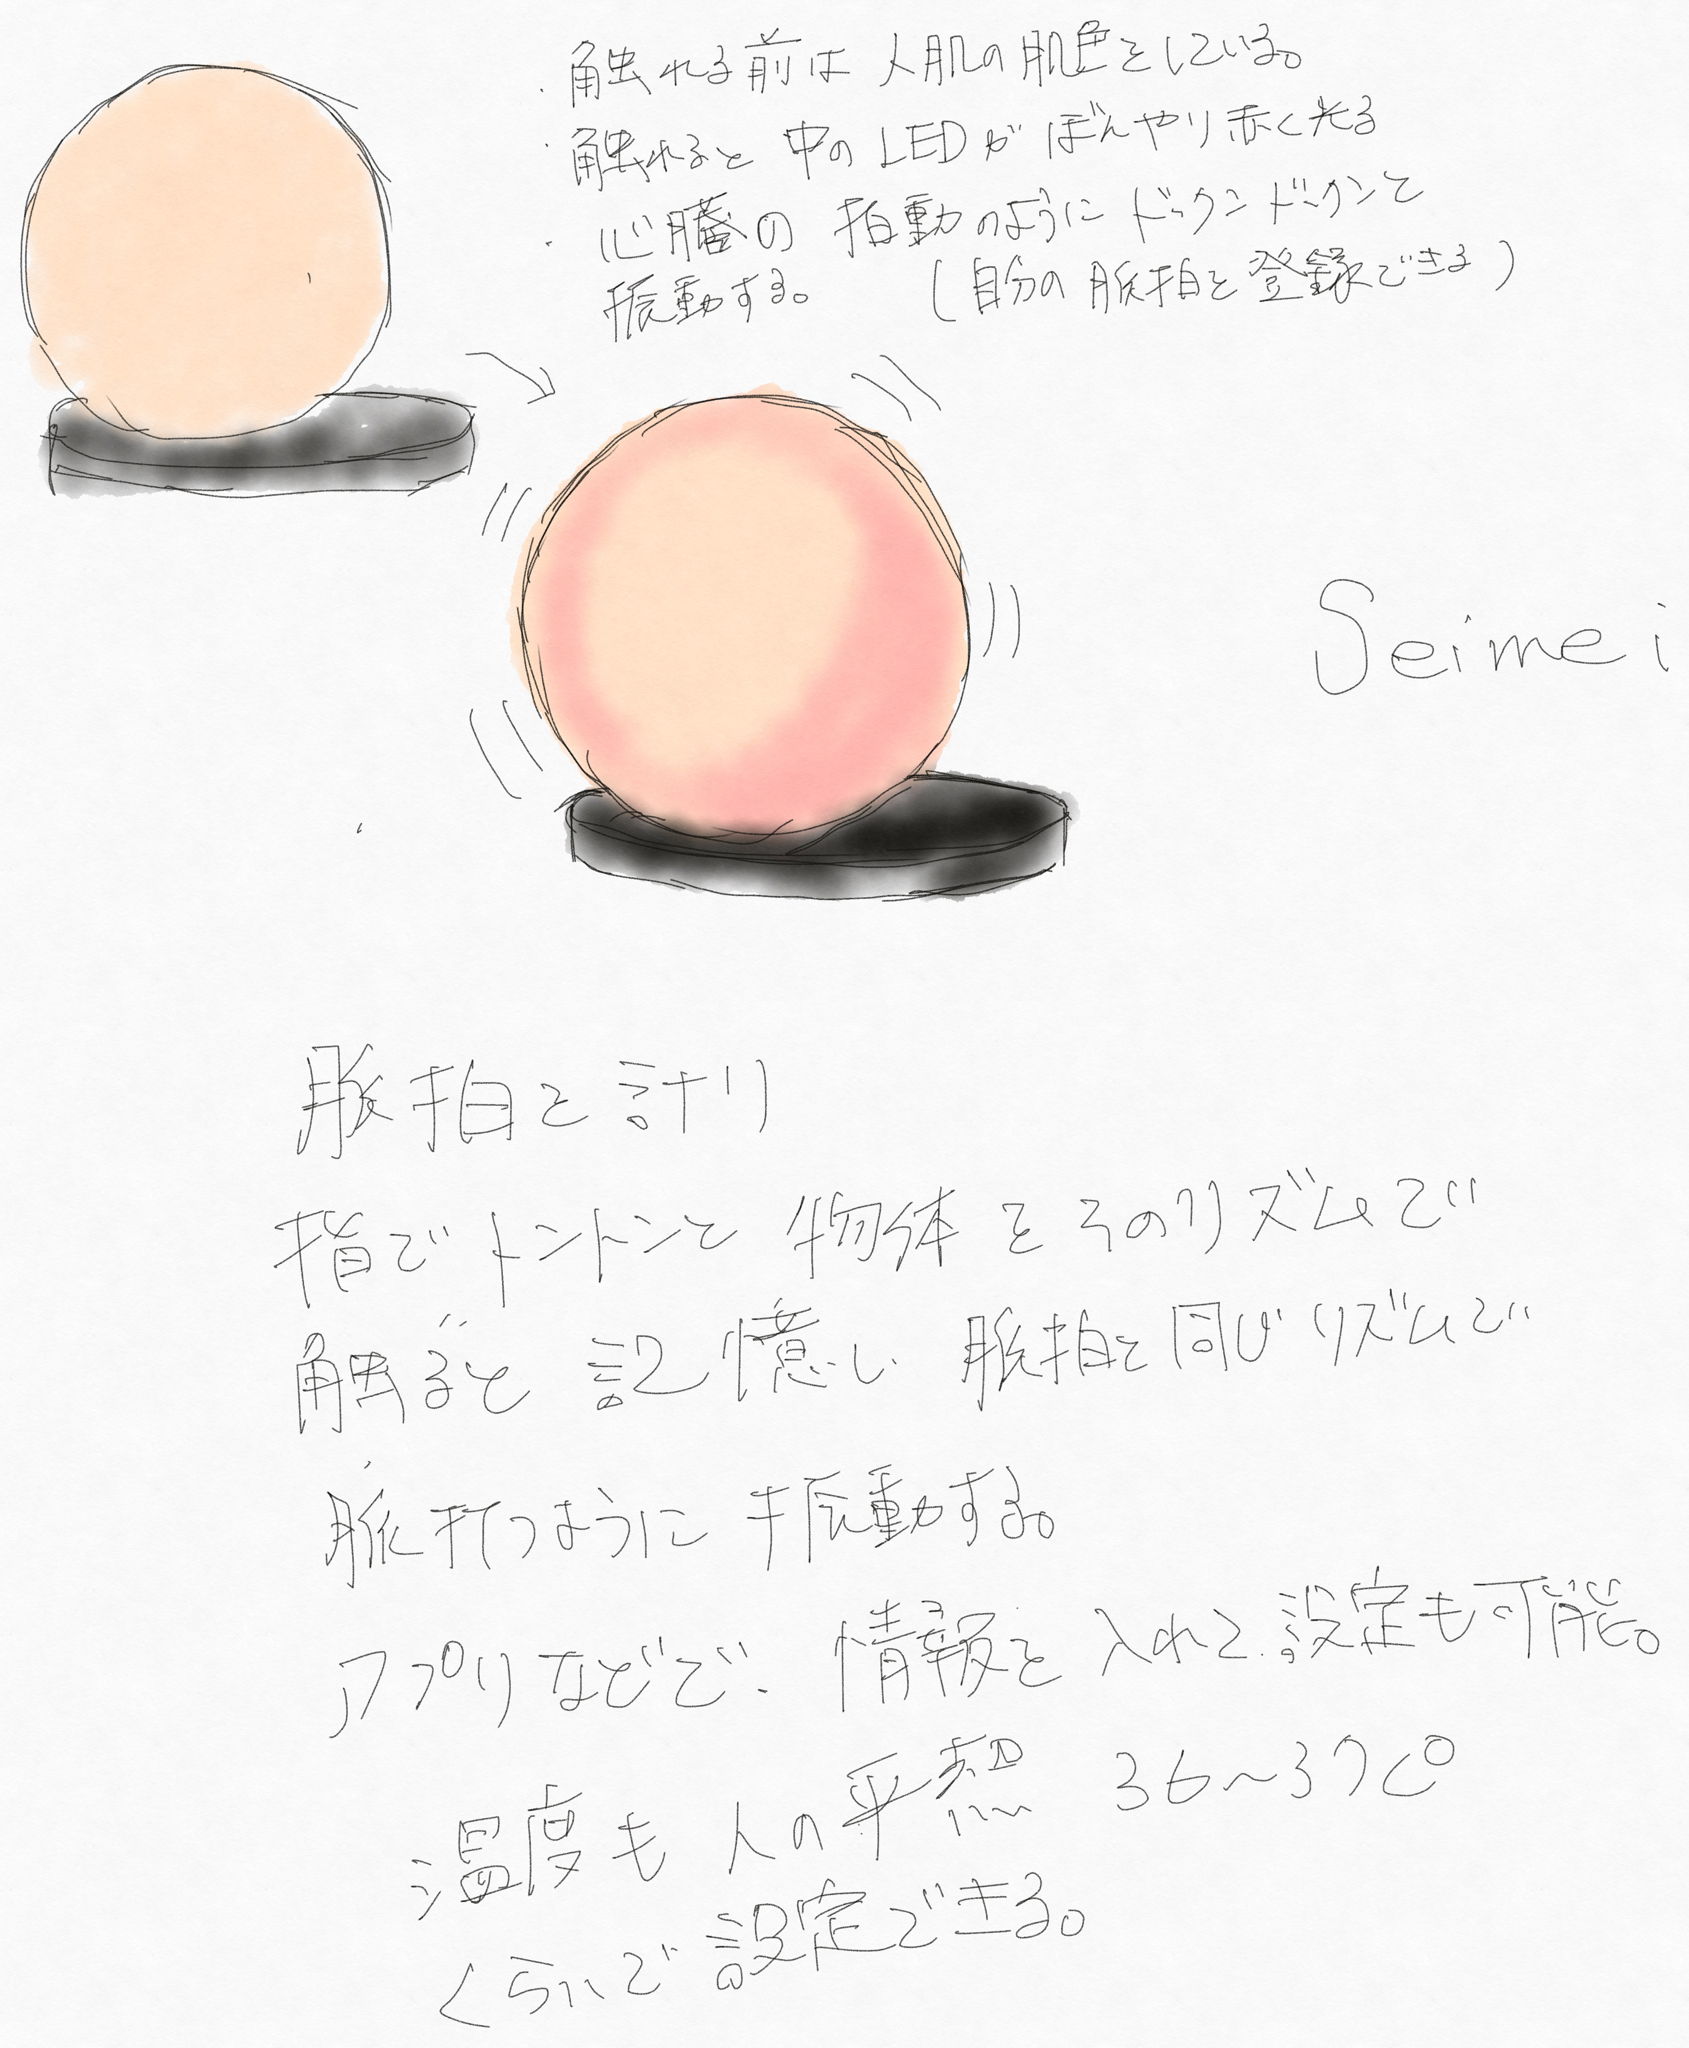 ・触れる前は人肌の肌色をしている。
・触れると中のLEDがぼんやり赤く光る
・心臓の拍動のようにドックンドックンと
振動する。 (自分の脈拍を登録できる)
Seimei
脈拍を計り
指でトントンと物体をそのリズムで
触ると記憶し脈拍と同じリズムで
脈打つように振動する。
アプリなどで、情報を入れて設定も可能。
温度も人の平熱 36〜37C°
くらいで設定できる。